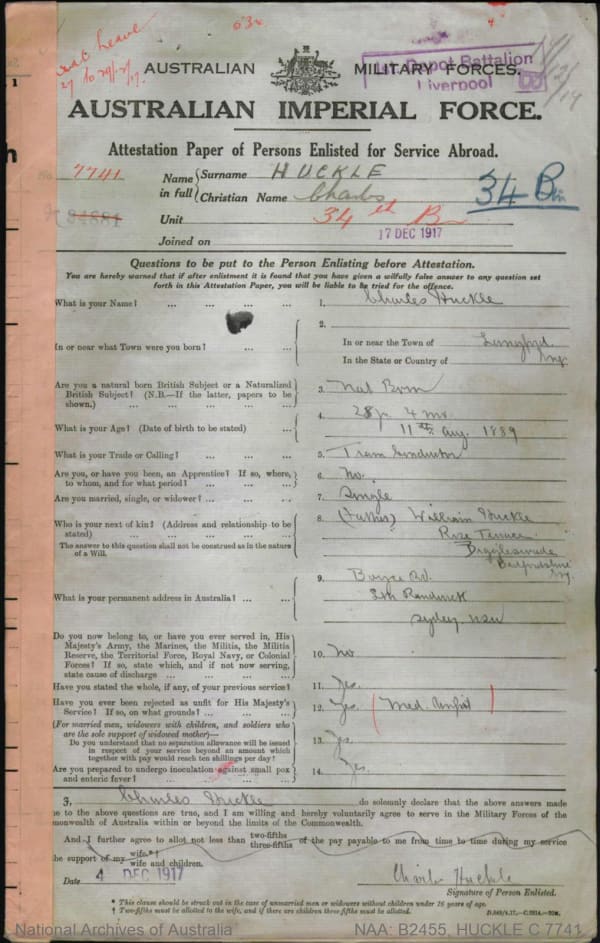 Leave
1st Depot Battalion
Liverpool
AUSTRALIAN MILITARY FORCES.
AUSTRALIAN IMPERIAL FORCE.
Attestation Paper of Persons Enlisted for Service Abroad.
7741
Name in full
Surname HUCKLE
Christian Name Charles
34 Bn
Unit 34th Bn
Joined on 17 DEC 1917
Questions to be put to the Person Enlisting before Attestation.
You are hereby warned that if after enlistment it is found that you have given a wilfully false answer to any question set
forth in this Attestation Paper, you will be liable to be tried for the offence.
What is your Name? ... ... ... 1. Charles Huckle
2.
In or near what Town were you born? ... ...
In or near the Town of
In the State or Country of Eng.
Are you a natural born British Subject or a Naturalized
British Subject? (N.B.—If the latter, papers to be
shown.) ... ... ... ... 3. Nat Born
What is your Age? (Date of birth to be stated) ... 4. 28 yr. 4 mo.
11th Aug. 1889
What is your Trade or Calling? ... ... ... 5. Tram Conductor
Are you, or have you been, an Apprentice? If so, where,
to whom, and for what period? ... ... ... 6. No.
Are you married, single, or widower? ... ... 7. Single
Who is your next of kin? (Address and relationship to be
stated) ... ... ... ...
The answer to this question shall not be construed as in the nature
of a Will.
8. (Father) William Huckle
Rose Terrace
Biggleswade
Bedfordshire
Eng.
What is your permanent address in Australia? ... ... 9. Boyce Rd.
Sth Randwick
Sydney NSW
Do you now belong to, or have you ever served in, His
Majesty's Army, the Marines, the Militia, the Militia
Reserve, the Territorial Force, Royal Navy, or Colonial
Forces? If so, state which, and if not now serving,
state cause of discharge ... ... ... 10. No
Have you stated the whole, if any, of your previous service? 11. Yes.
Have you ever been rejected as unfit for His Majesty's
Service? If so, on what grounds? ... ... 12. Yes. (Med. Unfit)
(For married men, widowers with children, and soldiers who
are the sole support of widowed mother)—
Do you understand that no separation allowance will be issued
in respect of your service beyond an amount which
together with pay would reach ten shillings per day? 13. Yes.
Are you prepared to undergo inoculation against small pox
and enteric fever? ... ... ... 14. Yes.
I, Charles Huckle do solemnly declare that the above answers made
me to the above questions are true, and I am willing and hereby voluntarily agree to serve in the Military Forces of the
monwealth of Australia within or beyond the limits of the Commonwealth.
And I further agree to allot not less than two-fifths three-fifths of the pay payable to me from time to time during my service
the support of my wife.*† wife and children.
Date 4 DEC 1917
Charles Huckle
Signature of Person Enlisted.
* This clause should be struck out in the case of unmarried men or widowers without children under 16 years of age.
† Two-fifths must be allotted to the wife, and if there are children three-fifths must be allotted.
National Archives of Australia
NAA: B2455, HUCKLE C 7741